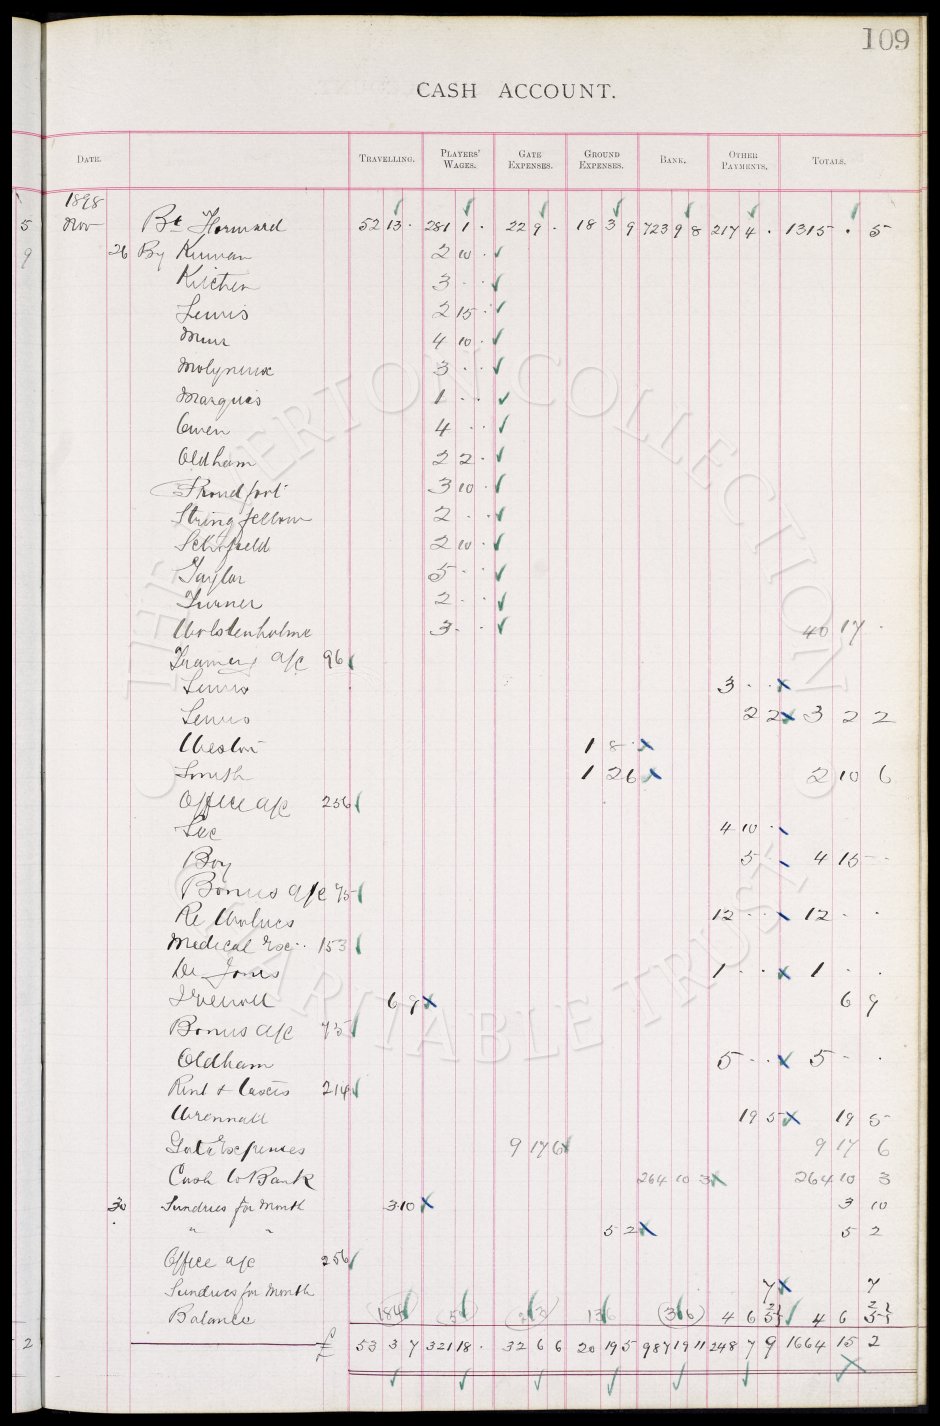 109
CASH ACCOUNT.
DATE. TRAVELLING. PLAYERS' WAGES. GATE EXPENSES. GROUND EXPENSES. BANK. OTHER PAYMENTS. TOTALS.
1898
5 Nov Bt Forward 52 13 · 281 1 · 22 9 · 18 3 9 723 9 8 217 4 · 1315 · 5
9 26 By Kirwan 2 10 ·
Kitchen 3 · ·
Lewis 2 15 ·
Muir 4 10 ·
Molyneux 3 · ·
Marquis 1 · ·
Owen 4 · ·
Oldham 2 2 ·
Proudfoot 3 10 ·
Stringfellow 2 · ·
Schofield 2 10 ·
Taylor 5 · ·
Turner 2 · ·
Wolstenholme 3 · · 40 17 ·
Training a/c 96
Lewis 3 · ·
Lewis 2 2 3 2 2
Weston 1 8 ·
Smith 1 2 6 2 10 6
Office a/c 256
Lee 4 10 ·
Boy 5 · 4 15 -
Bonus a/c 75
Re 12 · · 12 · ·
Medical Exc·· 153
Dr Jones 1 · · 1 · ·
6 9 6 9
Bonus a/c 75
Oldham 5 · · 5 - ·
Rent & taxes 214
Wrennall 19 5 19 5
Gate Expenses 9 17 6 9 17 6
Cash to Bank 264 10 3 264 10 3
30 Sundries for month 3 10 3 10
" " 5 2 5 2
Office a/c 256
Sundries for month 7 7
Balance 184 136 (3 6) 4 6 4 6
2 £ 53 3 7 321 18 · 32 6 6 20 19 5 987 19 11 248 7 9 1664 15 2
THE EVERTON COLLECTION
CHARITABLE TRUST